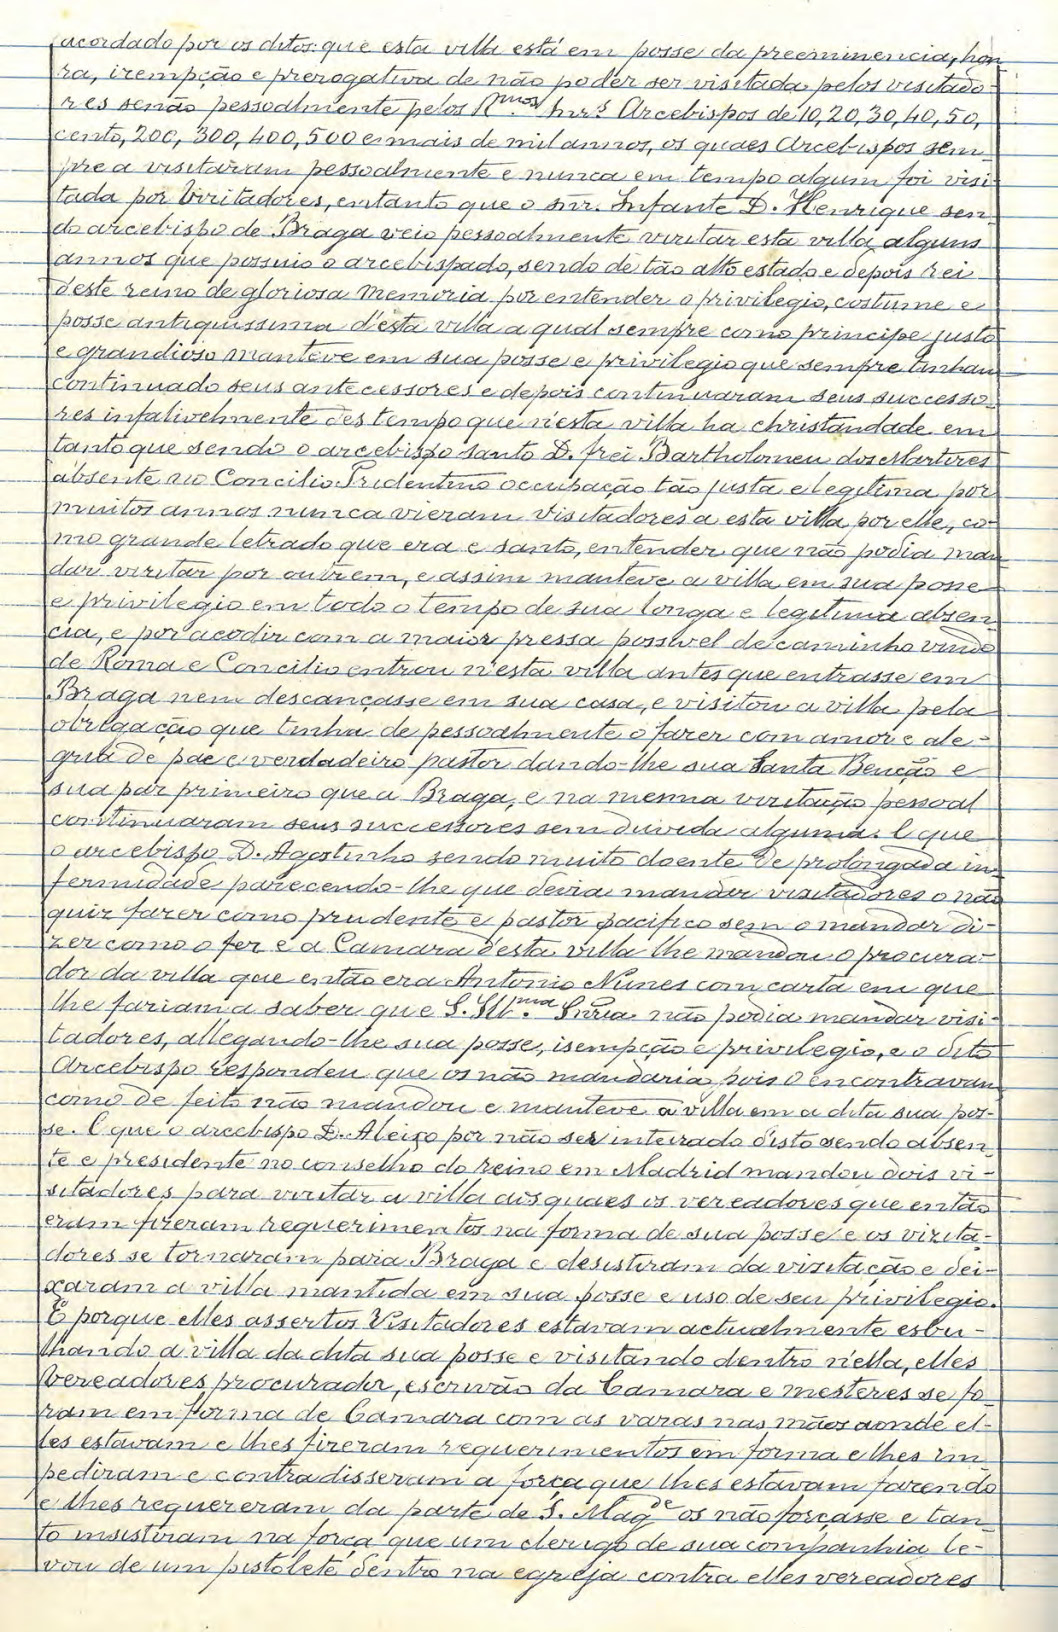 acordado por os ditos: que esta villa está em posse da preeminencia, hon
ra, irempção e prerogativa de não poder ser visitada pelos visitado-
res senão pessoalmente pelos R.mos Snr.s Arcebispos de 10, 20, 30, 40, 50,
cento, 200, 300, 400, 500 e mais de mil annos, os quaes Arcebispos sem-
pre a visitaram pessoalmente e nunca em tempo algum foi visi-
tada por Viritadores, entanto que o snr. Infante D. Henrique sen-
do arcebispo de Braga veio pessoalmente viritar esta villa alguns
annos que possuio o arcebispado, sendo de tão alto estado e depois rei
deste reino de gloriosa memoria por entender o privilegio, costume e
posse antiquissima d'esta villa a qual sempre como principe justo
e grandioso manteve em sua posse e privilegio que sempre tinham
continuado seus antecessores e depois continuaram seus successo-
res infalivelmente des tempo que n'esta villa ha christandade em
tanto que sendo o arcebispo santo D. frei Bartholomeu dos Martires
absente no Concilio Tridentino occupação tão justa e legitima por
muitos annos nunca vieram visitadores a esta villa, por elle, co-
mo grande letrado que era e santo, entender que não podia man
dar viritar por outrem, e assim manteve a villa em sua posse
e privilegio em todo o tempo de sua longa e legitima absen-
cia, e por acodir com a maior pressa possivel de caminho vindo
de Roma e Concilio entrou n'esta villa antes que entrasse em
Braga nem descançasse em sua casa, e visitou a villa pela
obrigação que tinha de pessoalmente o farer com amor e ale-
gria de pae e verdadeiro pastor dando-lhe sua Santa Benção e
sua par primeiro que a Braga, e na mesma viritação pessoal
continuaram seus successores sem duvida alguma. E que
o arcebispo D. Agostinho sendo muito doente de prolongada in-
fermidade parecendo-lhe que devia mandar visitadores o não
quir farer como prudente e pastor pacifico sem o mandar di-
zer como o fer e a Camara d'esta villa lhe mandou o procura-
dor da villa que então era Antonio Nunes com carta em que
lhe fariam a saber que S. Ill.ma Snria não podia mandar visi-
tadores, allegando-lhe sua posse, isempção e privilegio, e o dito
Arcebispo respondeu que os não mandaria pois o encontravam
como de feito não mandou e manteve a villa em a dita sua pos-
se. E que o arcebispo D. Aleixo por não ser inteirado d'isto sendo absen-
te e presidente no conselho do reino em Madrid mandou dois vi-
sitadores para viritar a villa aos quaes os vereadores que então
eram fireram requerimentos na forma de sua posse e os virita-
dores se tornaram para Braga e desistiram da visitação e dei-
xaram a villa mantida em sua posse e uso de seu privilegio.
E porque elles assertos Visitadores estavam actualmente esbu-
lhando a villa da dita sua posse e visitando dentro n'ella, elles
Vereadores procurador, escrivão da Camara e mesteres se fo-
ram em forma de Camara com as varas nas mãos aonde el-
les estavam e lhes fireram requerimentos em forma e lhes im-
pediram e contradisseram a força que lhes estavam farendo
e lhes requereram da parte de S. Mag.de os não forçasse e tan-
to insistiram na força que um clerigo de sua companhia le-
vou de um pistolete dentro na egreja contra elles vereadores